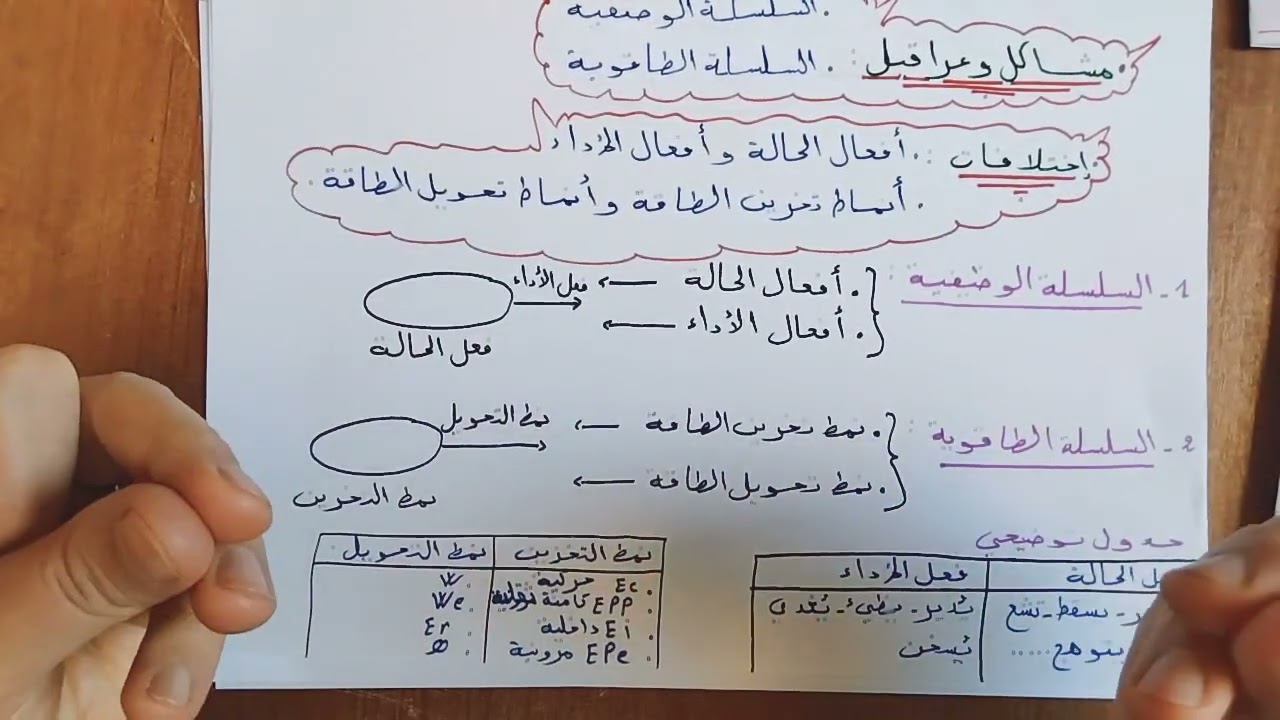 . السلسلة الوضيفية
. مشاكل وعراقيل : . السلسلة الطاقوية
. إختلافات : . أفعال الحالة و أفعال الأداء
. أنماط تخزين الطاقة و أنماط تحويل الطاقة
1 - السلسلة الوضيفية :
. أفعال الحالة ←
. أفعال الأداء ←
فعل الأداء
فعل الحالة
2 - السلسلة الطاقوية :
. نمط تخزين الطاقة ←
. نمط تحويل الطاقة ←
نمط التحويل
نمط التخزين
جدول توضيحي
فعل الأداء
تدير - يضيء - تغذي
يسخن
يل الحالة
ر - يسقط - تشع
يتوهج .....
نمط التخزين | نمط التحويل
. Ec حركية | . W
. Epp كامنة | . We
. Ei داخلية | . Er
. Epe مرونية | .